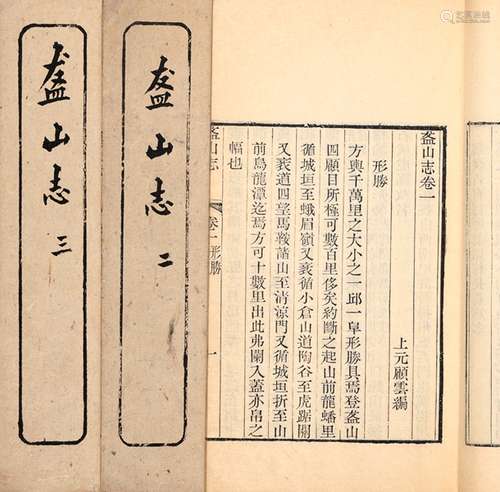 盋山志卷一
上元顧雲編
形勝
方輿千萬里之大小之一邱一阜形勝具焉登盋山
四顧目所極可數百里侈矣約斷之起山前龍蟠里
循城垣至蛾眉嶺又衺循小倉山道陶谷至虎踞關
又衺道四望馬鞍諸山至清涼門又循城垣折至山
前烏龍潭迄焉方可十數里出此弗闌入蓋亦帛之
幅也
盋山志 卷一形勝 一
盋山志 二
盋山志 三